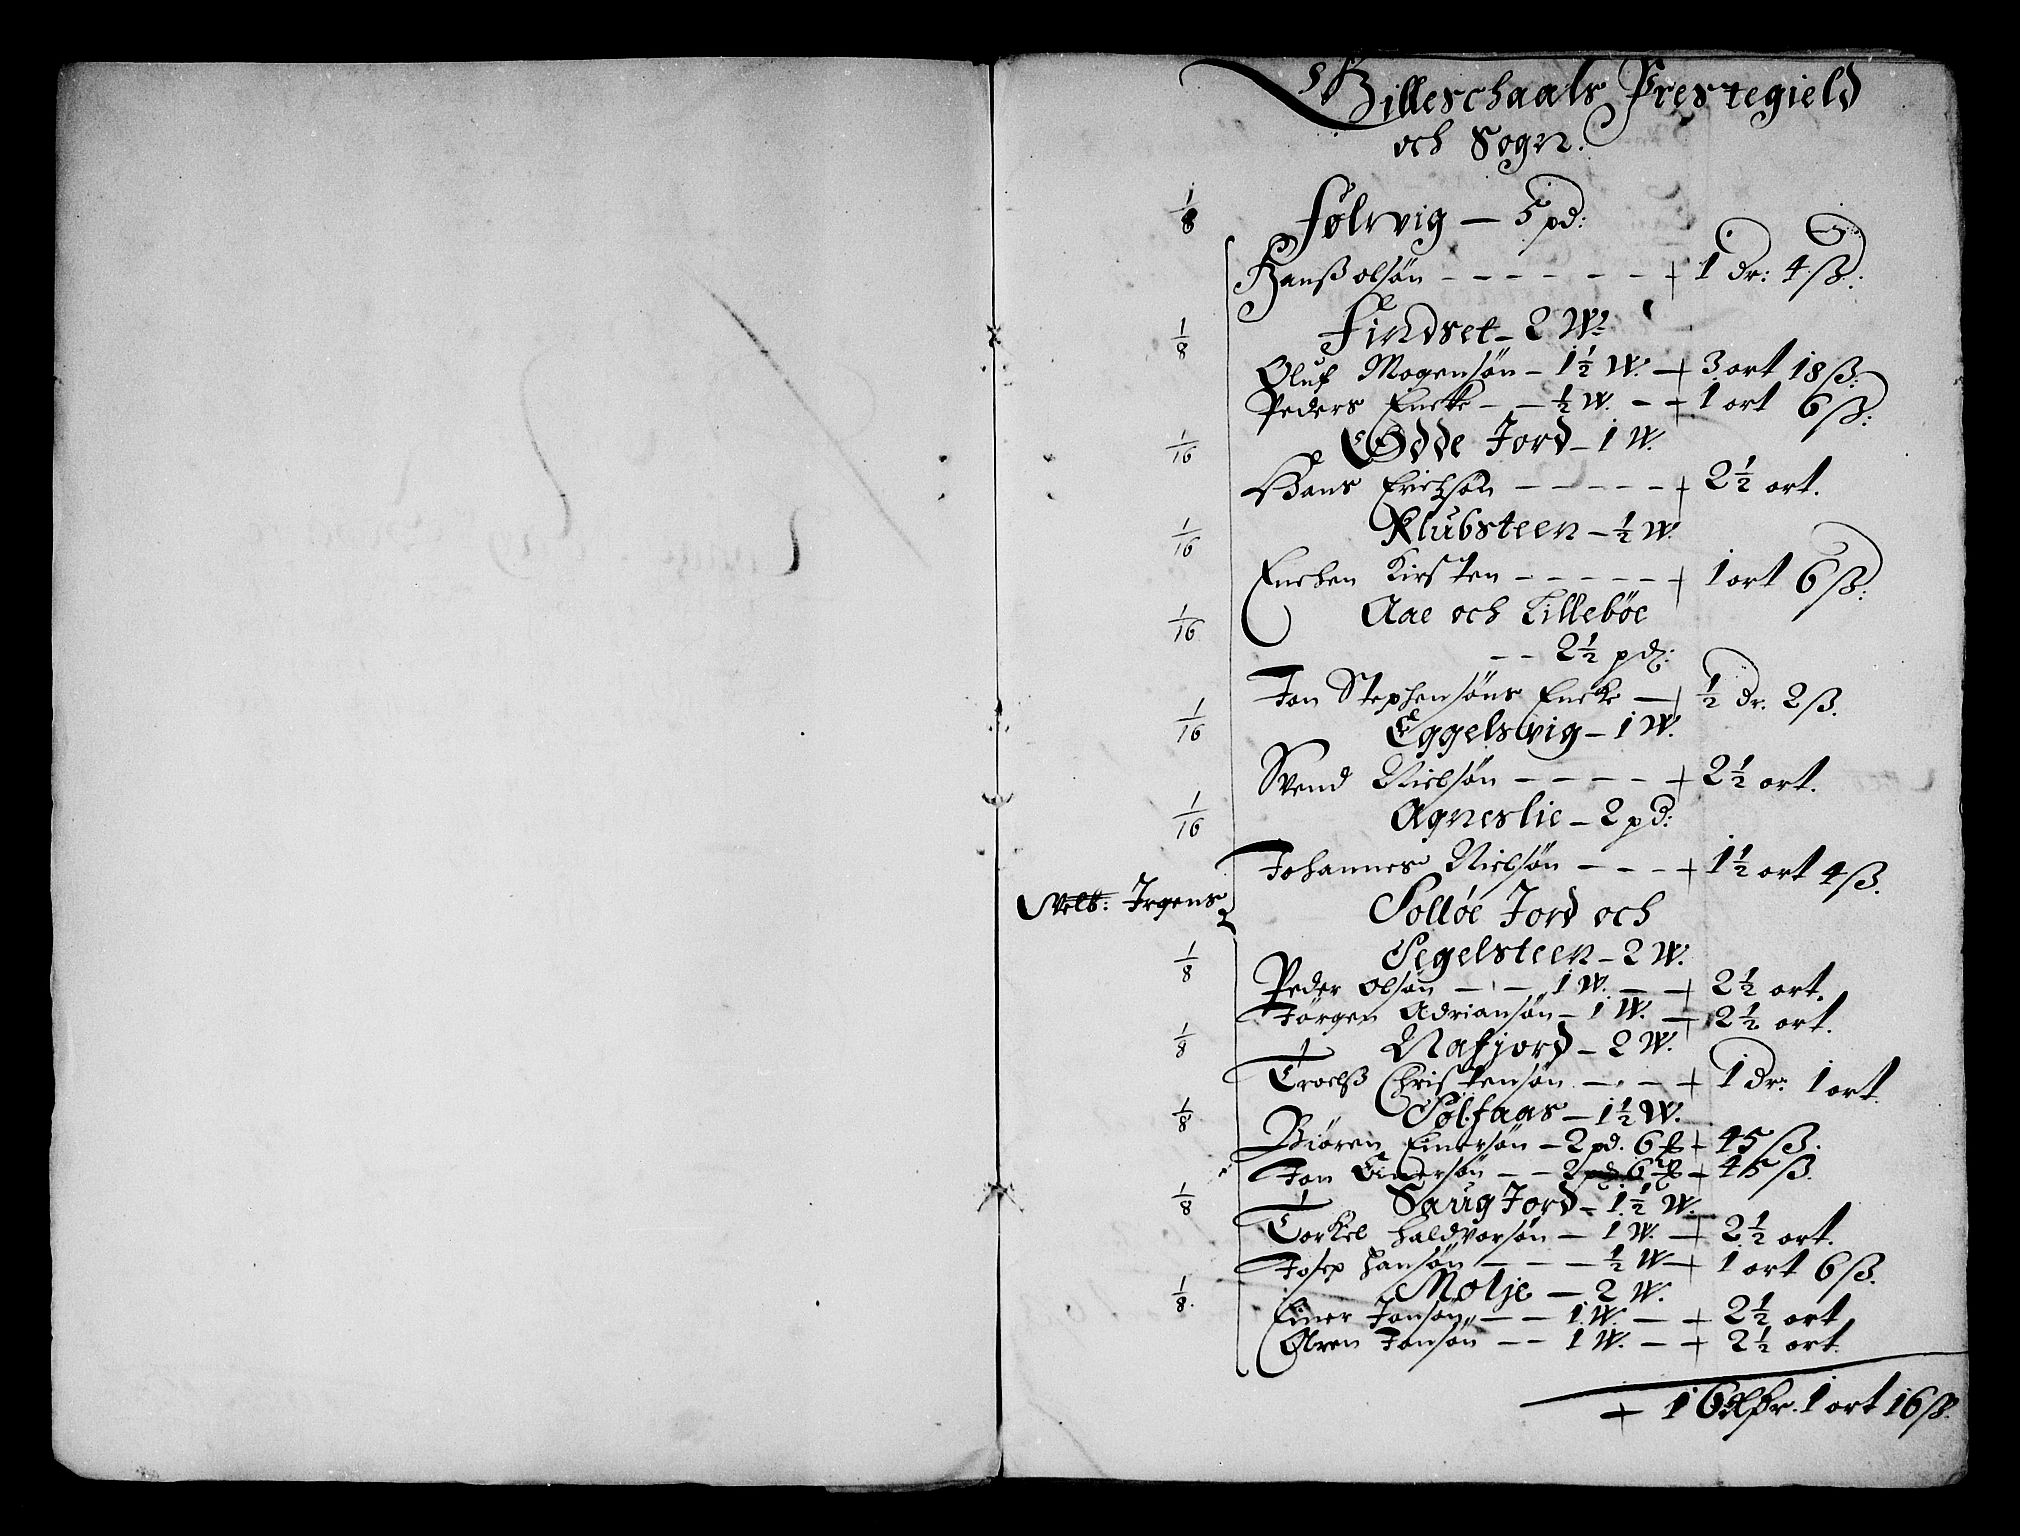 Gilleschaals Prestegield
och Sogn.
1/8 Sølsvig — 5 pd:
Hanß olsøn - - - - - - + 1 dr: 4 ß:
1/8 Findset - 2 W:
Oluf Mogensøn - 1 1/2 W. - + 3 ort 18 ß:
Peders Encke - - 1/2 W. - - + 1 ort 6 ß:
1/16 Odde Jord - 1 W.
Hans Erichsøn - - - - - + 2 1/2 ort.
1/16 Klubsteen - 1/2 W.
Enchen Kirsten - - - - - + 1 ort 6 ß:
1/16 Aae och Lillebøe
- - 2 1/2 pd:
Jon Stephensøns Encke - + 1/2 dr: 2 ß.
1/16 Eggelsvig - 1 W.
Svend Nielsøn - - - - + 2 1/2 ort.
1/16 Agneslie - 2 pd:
Johannes Nielsøn - - - + 1 1/2 ort 4 ß.
Irgens
Solløe Jord och
1/8 Segelsteen - 2 W.
Peder olsøn - - - 1 W. - - + 2 1/2 ort.
Jørgen Adriansøn - 1 W. - + 2 1/2 ort.
1/8 Nafjord - 2 W.
Troelß Christensøn - - - + 1 dr: 1 ort
1/8 Sølfaas - 1 1/2 W.
Biøren Einersøn - 2 pd. 6 + 45 ß.
Jon Einersøn - - 2 pd 6 + 45 ß.
1/8 Saug Jord - 1 1/2 W.
Torkel haldvorsøn - 1 W. - + 2 1/2 ort.
Josep hansøn - - - - 1/2 W - + 1 ort 6 ß.
1/8. Molje - 2 W.
Einer Jonsøn - - 1 W. - - + 2 1/2 ort
Øren Jonsøn - - 1 W. - + 2 1/2 ort.
+ 16 1 ort 16 ß.